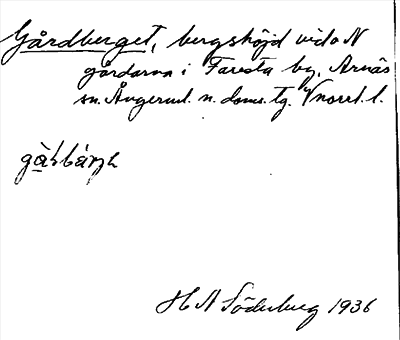 Gårdberget, bergshöjd vid o N
gårdarna i Faresta by, Arnäs
sn. Ångerml. n. doms. tg. Vnorrl. l.
H A Söderberg 1936